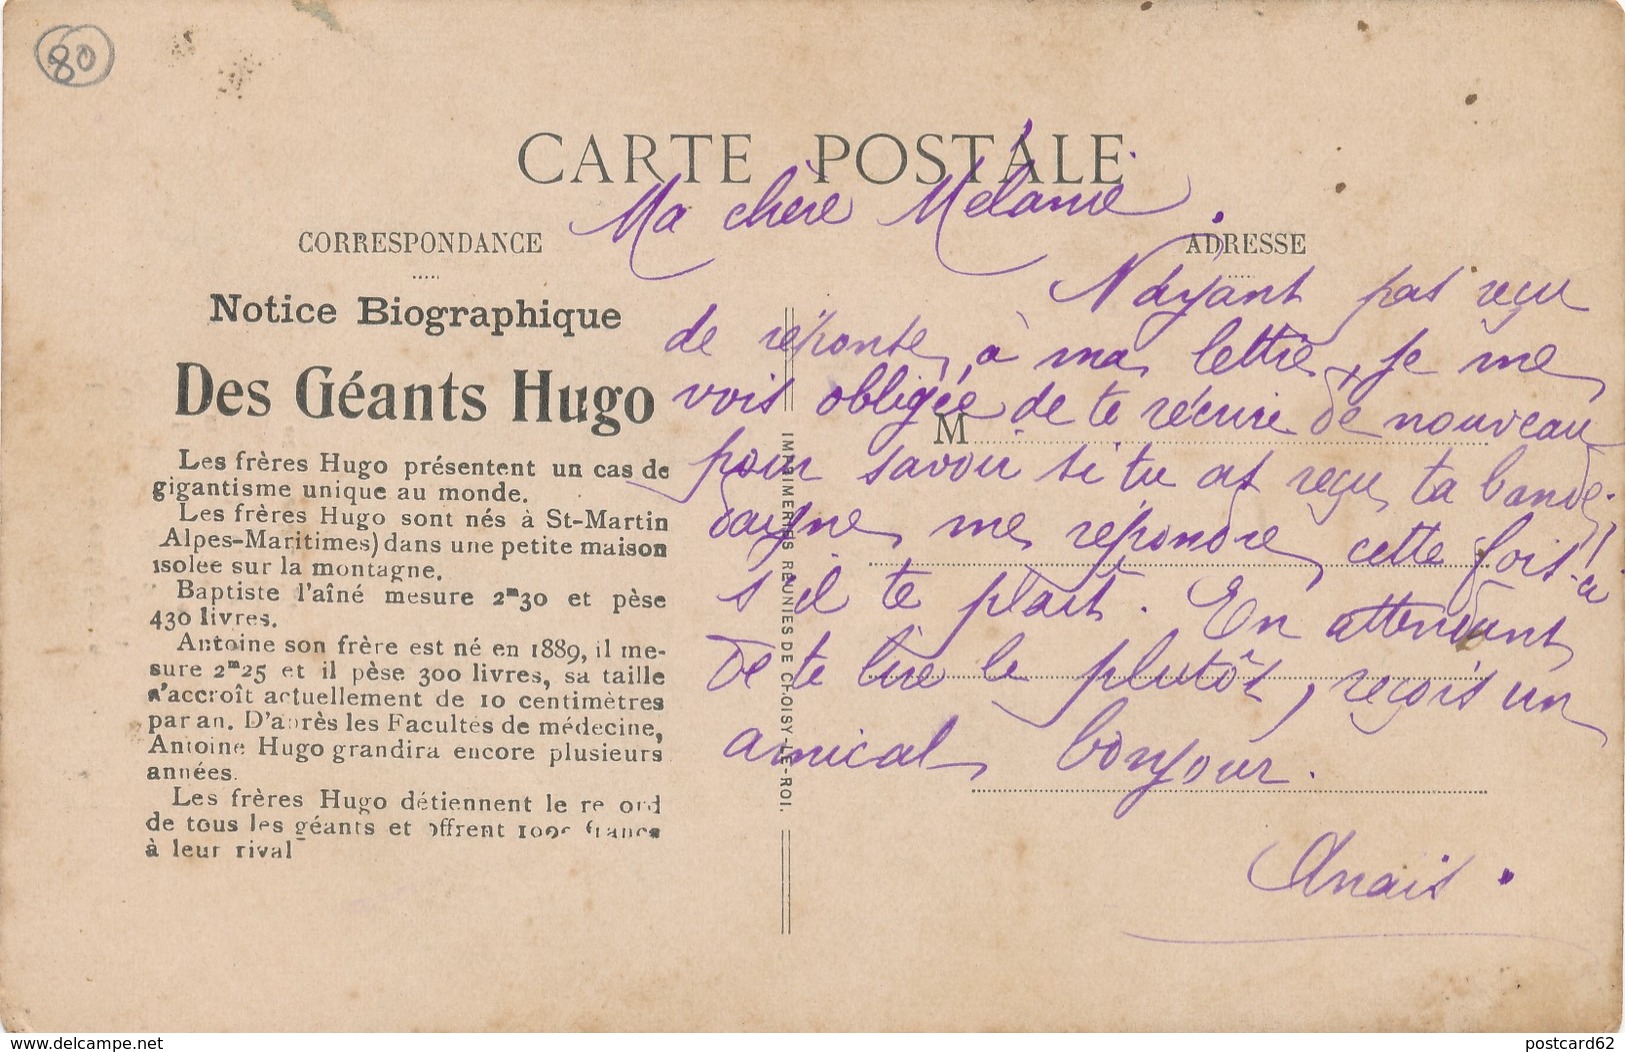 80
CARTE POSTALE
CORRESPONDANCE
ADRESSE
Notice Biographique
Des Géants Hugo
Les frères Hugo présentent un cas de
gigantisme unique au monde.
Les frères Hugo sont nés à St-Martin
Alpes-Maritimes) dans une petite maison
isolee sur la montagne.
Baptiste l'aîné mesure 2m30 et pèse
430 livres.
Antoine son frère est né en 1889, il me-
sure 2m25 et il pèse 300 livres, sa taille
s'accroît actuellement de 10 centimètres
par an. D'après les Facultés de médecine,
Antoine Hugo grandira encore plusieurs
années.
Les frères Hugo détiennent le re ord
de tous les géants et offrent francs
à leur rival
IMPRIMERIES REUNIES DE CHOISY-LE-ROI.
M
Ma chère Mélanie.
N'ayant pas reçu
de réponse à ma lettre, je me
vois obligée de te récrire de nouveau
pour savoir si tu as reçu ta bande.
daigne me répondre cette fois-ci
s'il te plait. En attendant
de te lire le plutôt, reçois un
amical bonjour.
Anais.
www.delcampe.net
postcard62